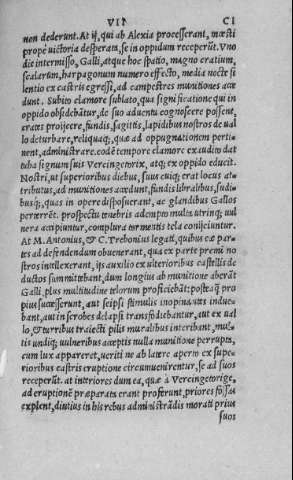 VII CI
nen dederunt. At ij, qui ab Alexia processerant, mœsti
propè victoria desperata, se in oppidum receperũt. Vno
die intermisso, Galli, atque hoc spatio, magno cratium,
scalarum, harpagonum numero effecto, media nocte si
lentio ex castris egressi, ad campestres munitiones acce
dunt. Subito clamore sublato, qua significatione qui in
oppido obsidebãtur, de suo aduentu cognoscere possent,
crates proijcere, fundis, sagittis, lapidibus nostros de ual
lo deturbare, reliquaq́; quæ ad oppugnationem perti-
nent, administrare. eodẽ tempore clamore exaudito dat
tuba signum suis Vercingetorix, atq; ex oppido educit.
Nostri, ut superioribus diebus, suus cuiq; erat locus at-
tributus, ad munitiones accedunt, fundis librilibus, sudi-
busq́; quas in opere disposuerant, ac glandibus Gallos
perterrẽt. prospectu tenebris adempto multa utrinq; uul
nera accipiuntur, complura tormentis tela conijciuntur.
At M. Antonius, & C. Trebonius legati, quibus eæ par-
tes ad defendendum obuenerant, qua ex parte premi no
stros intellexerant, ijs auxilio ex ulterioribus castellis de
ductos summittebant, dum longius ab munitione aberãt
Galli, plus multitudine telorum proficiebãt: posteaq̃ pro
pius successerunt, aut seipsi stimulis inopinãtes indue-
bant, aut in scrobes delapsi transfodiebantur, aut ex ual
lo, & turribus traiecti pilis muralibus interibant, mul-
tis undiq; uulneribus acceptis nulla munitione perrupta,
cum lux appareret, ueriti ne ab latere aperto ex supe-
rioribus castris eruptione circumuenirentur, se ad suos
receperũt. at interiores dum ea, quæ à Vercingetorige,
ad eruptionẽ præparata erant proferunt, priores fossas
explent, diutius in his rebus administrãdis morati prius
suos